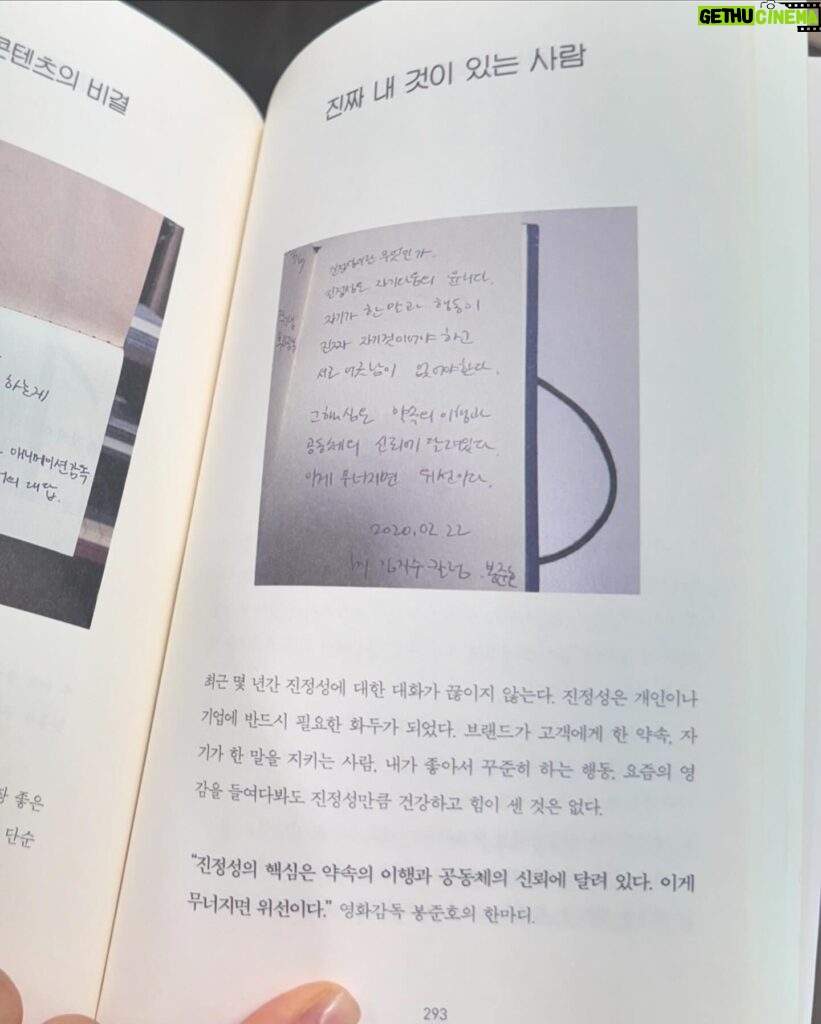 GETHUCINEMA
콘텐츠의 비결
하는게
애니메이션감독
의 대답.
좋은
단순
진짜 내 것이 있는 사람
진정성이란 무엇인가.
진정성은 자기다움의 윤리다.
자기가 한 말과 행동이
진짜 자기것이어야 하고
서로 어긋남이 없어야한다.
그 핵심은 약속의 이행과
공동체의 신뢰에 달려있다.
이게 무너지면 위선이다.
2020.02.22
by 김지수
최근 몇 년간 진정성에 대한 대화가 끊이지 않는다. 진정성은 개인이나
기업에 반드시 필요한 화두가 되었다. 브랜드가 고객에게 한 약속, 자
기가 한 말을 지키는 사람, 내가 좋아서 꾸준히 하는 행동. 요즘의 영
감을 들여다봐도 진정성만큼 건강하고 힘이 센 것은 없다.
“진정성의 핵심은 약속의 이행과 공동체의 신뢰에 달려 있다. 이게
무너지면 위선이다.” 영화감독 봉준호의 한마디.
293